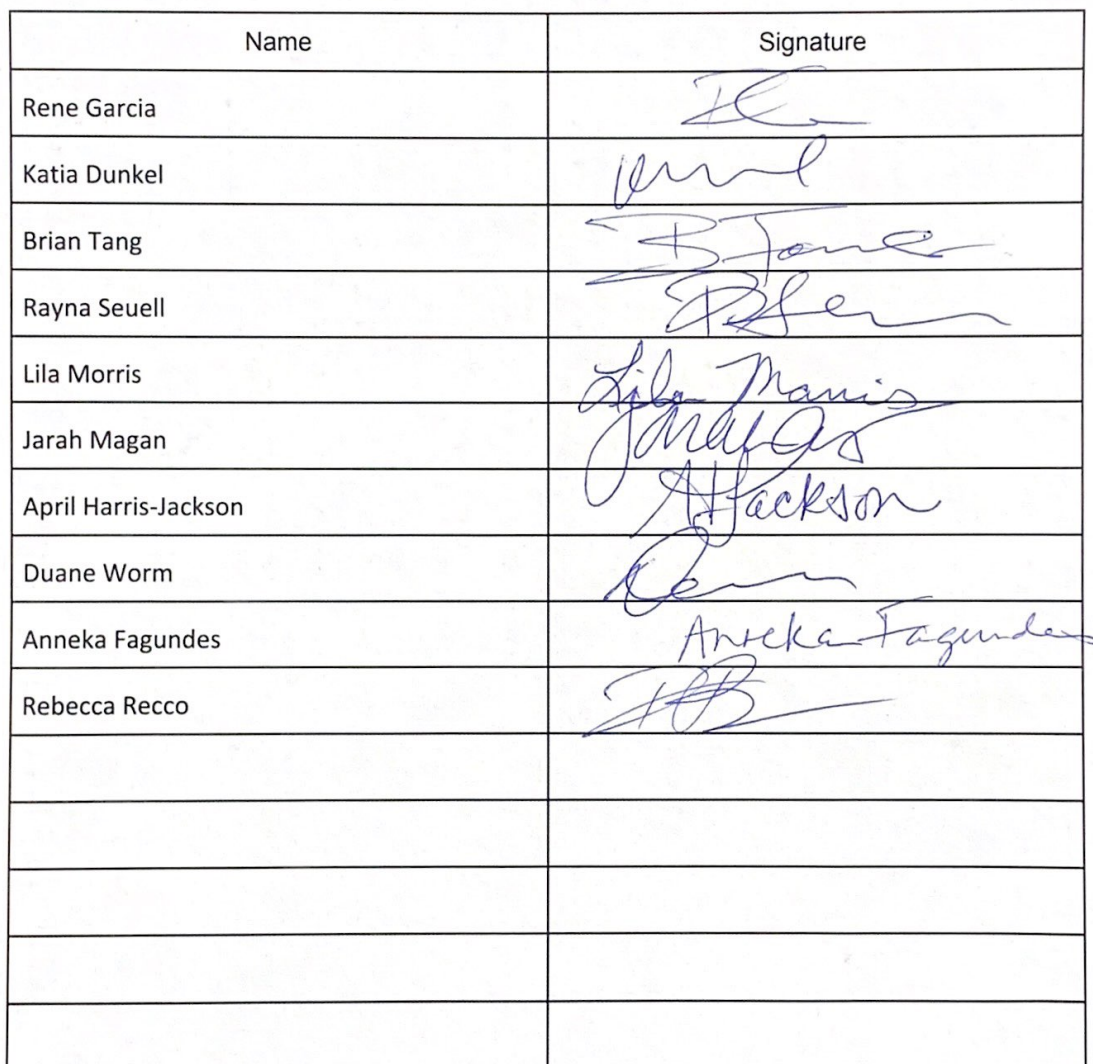 Name Signature
Rene Garcia
Katia Dunkel
Brian Tang B Tang
Rayna Seuell
Lila Morris Lila Morris
Jarah Magan
April Harris-Jackson AHJackson
Duane Worm
Anneka Fagundes Anneka Fagundes
Rebecca Recco